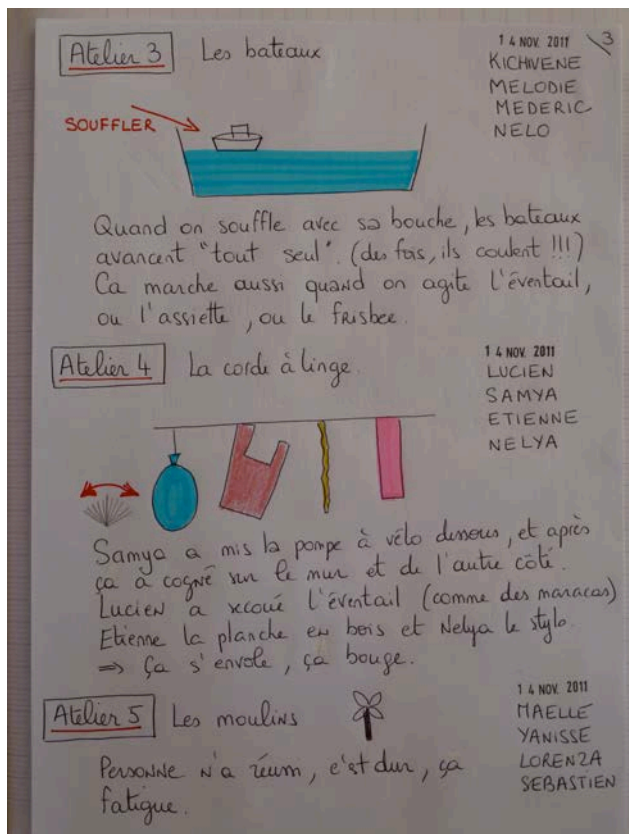 Atelier 3 Les bateaux
14 NOV. 2011 3
KICHIVENE
MELODIE
MEDERIC
NELO
SOUFFLER
Quand on souffle avec sa bouche, les bateaux
avancent "tout seul". (des fois, ils coulent !!!)
Ca marche aussi quand on agite l'éventail,
ou l'assiette, ou le frisbee.
Atelier 4 La corde à linge.
14 NOV. 2011
LUCIEN
SAMYA
ETIENNE
NELYA
Samya a mis la pompe à vélo dessous, et après
ça a cogné sur le mur et de l'autre côté.
Lucien a secoué l'éventail (comme des maracas)
Etienne la planche en bois et Nelya le stylo.
⇒ ça s'envole, ça bouge.
Atelier 5 Les moulins
14 NOV. 2011
MAELLE
YANISSE
LORENZA
SEBASTIEN
Personne n'a réussi, c'est dur, ça
fatigue.